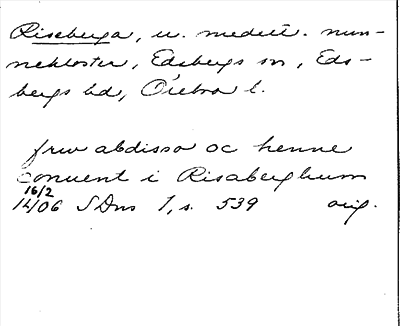 Riseberga, u. medelt. nun-
nekloster, Edsbergs sn, Eds-
bergs hd, Örebro l.
frw abdissa oc henne
conuent i Risaberghum
16/2
1406 SDns 1, s. 539 orig.